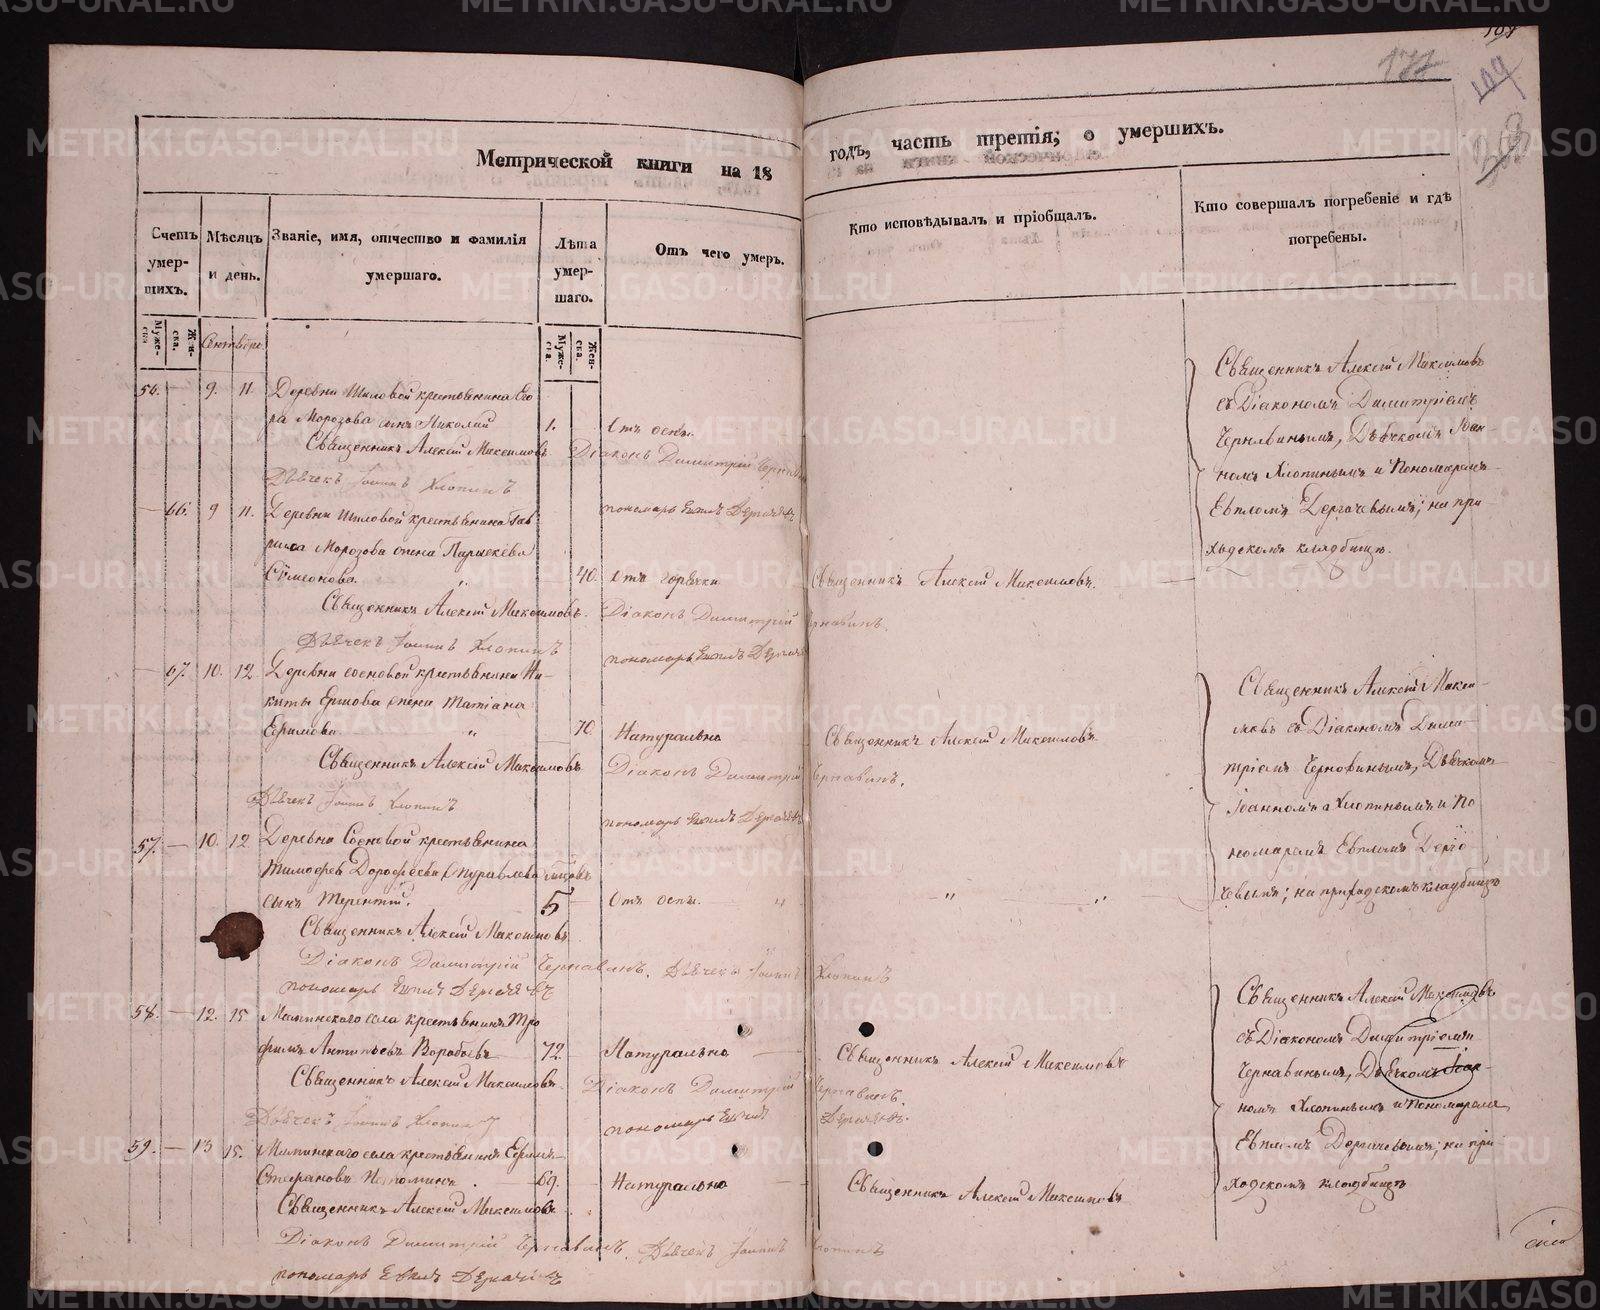 Метрической книги на 18
годъ, часть третія; о умершихъ.
Счетъ умер-шихъ.
Мѣсяцъ и день.
Званіе, имя, отчество и фамилія умершаго.
Лѣта умер-шаго.
Отъ чего умеръ.
Кто исповѣдывалъ и пріобщалъ.
Кто совершалъ погребеніе и гдѣ погребены.
Муже-ска
Жен-ска.
Муже-ска.
Жен-ска.
Сентябрь
56. — 9. 11. Деревни Шиловой крестьянина Его
ра Морозова сынъ Николай 1. Отъ оспы.
Священникъ Алексій Максимовъ Діаконъ Димитрій
Дьячекъ Іоаннъ Хлопинъ
пономарь Евплъ Дергачевъ
— 66. 9 11. Деревни Шиловой крестьянина Гав
рила Морозова жена Параскева
Симеонова. 40. Отъ горячки Священникъ Алексій Максимовъ.
Священникъ Алексій Максимовъ. Діаконъ Димитрій Чернавинъ.
Дьячекъ Іоаннъ Хлопинъ
пономарь Евплъ
Священникъ Алексій Максимовъ
съ Діакономъ Димитріемъ
Чернавинымъ, Дьячкомъ Іоан-
номъ Хлопинымъ и Пономаремъ
Евпломъ Дергачевымъ; на при-
ходскомъ кладбищѣ.
— 67. 10. 12 Деревни Сосновой крестьянина Ни-
киты Ершова жена Татіана
70. Натурально Священникъ Алексій Максимовъ
Священникъ Алексій Максимовъ Діаконъ Димитрій Чернавинъ.
Дьячекъ Іоаннъ Хлопинъ
пономарь Евплъ Дергачевъ
57. — 10. 12 Деревни Сосновой крестьянина
Тимофея Дорофеева
сынъ Терентій. 5 Отъ оспы. " " "
Священникъ Алексій Максимовъ
Діаконъ Димитрій Чернавинъ. Дьячекъ Іоаннъ Хлопинъ
пономарь Евплъ Дергачевъ
Священникъ Алексій Макси-
мовъ съ Діакономъ Дими-
тріемъ Чернавинымъ, Дьячкомъ
Іоанномъ Хлопинымъ и По
номаремъ Евпломъ Дерга
чевымъ; на приходскомъ кладбищѣ
58. — 12. 15 Маминскаго села крестьянинъ Тро
фимъ Антипьевъ Воробьевъ 72. Натурально — Священникъ Алексій Максимовъ
Священникъ Алексій Максимовъ. Діаконъ Димитрій Чернавинъ.
Дьячекъ Іоаннъ Хлопинъ
пономарь Евплъ Дергачевъ.
59. — 13 15. Маминскаго села крестьянинъ
Стефановъ 69. Натурально — Священникъ Алексій Максимовъ
Священникъ Алексій Максимовъ
Діаконъ Димитрій Чернавинъ. Дьячекъ Іоаннъ Хлопинъ
пономарь Евплъ Дергачевъ
Священникъ Алексій Максимовъ
съ Діакономъ Димитріемъ
Чернавинымъ, Дьячкомъ Іоан-
номъ Хлопинымъ и Пономаремъ
Евпломъ Дергачевымъ; на при-
ходскомъ кладбищѣ
METRIKI.GASO-URAL.RU